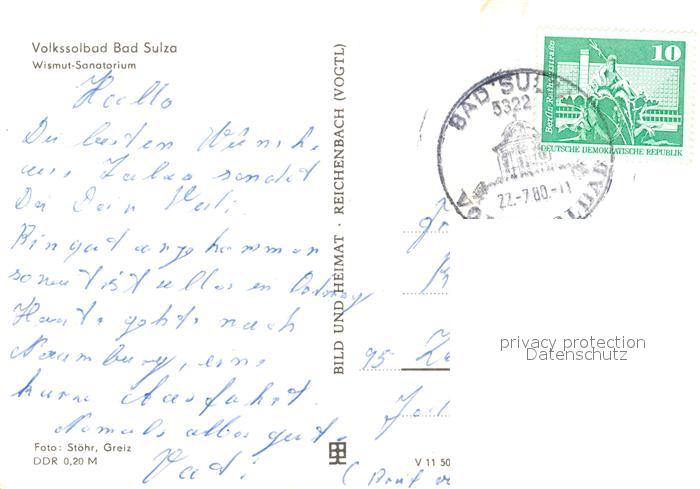 Volkssolbad Bad Sulza
Wismut-Sanatorium
Hallo
Die besten Wünsche
aus Sulza sendet
Dir Dein Vati.
Bin gut angekommen
sonst ist alles in Ordnung
Heute gehts nach
Naumburg, eine
kurze Ausfahrt.
Nomals alles gute.
Vati
Foto: Stöhr, Greiz
DDR 0,20 M
BILD UND HEIMAT · REICHENBACH (VOGTL)
V 11 50
BAD SULZA
5322
22.-7.80.-11
10
Berlin, Rathausstraße
DEUTSCHE DEMOKRATISCHE REPUBLIK
95
privacy protection
Datenschutz